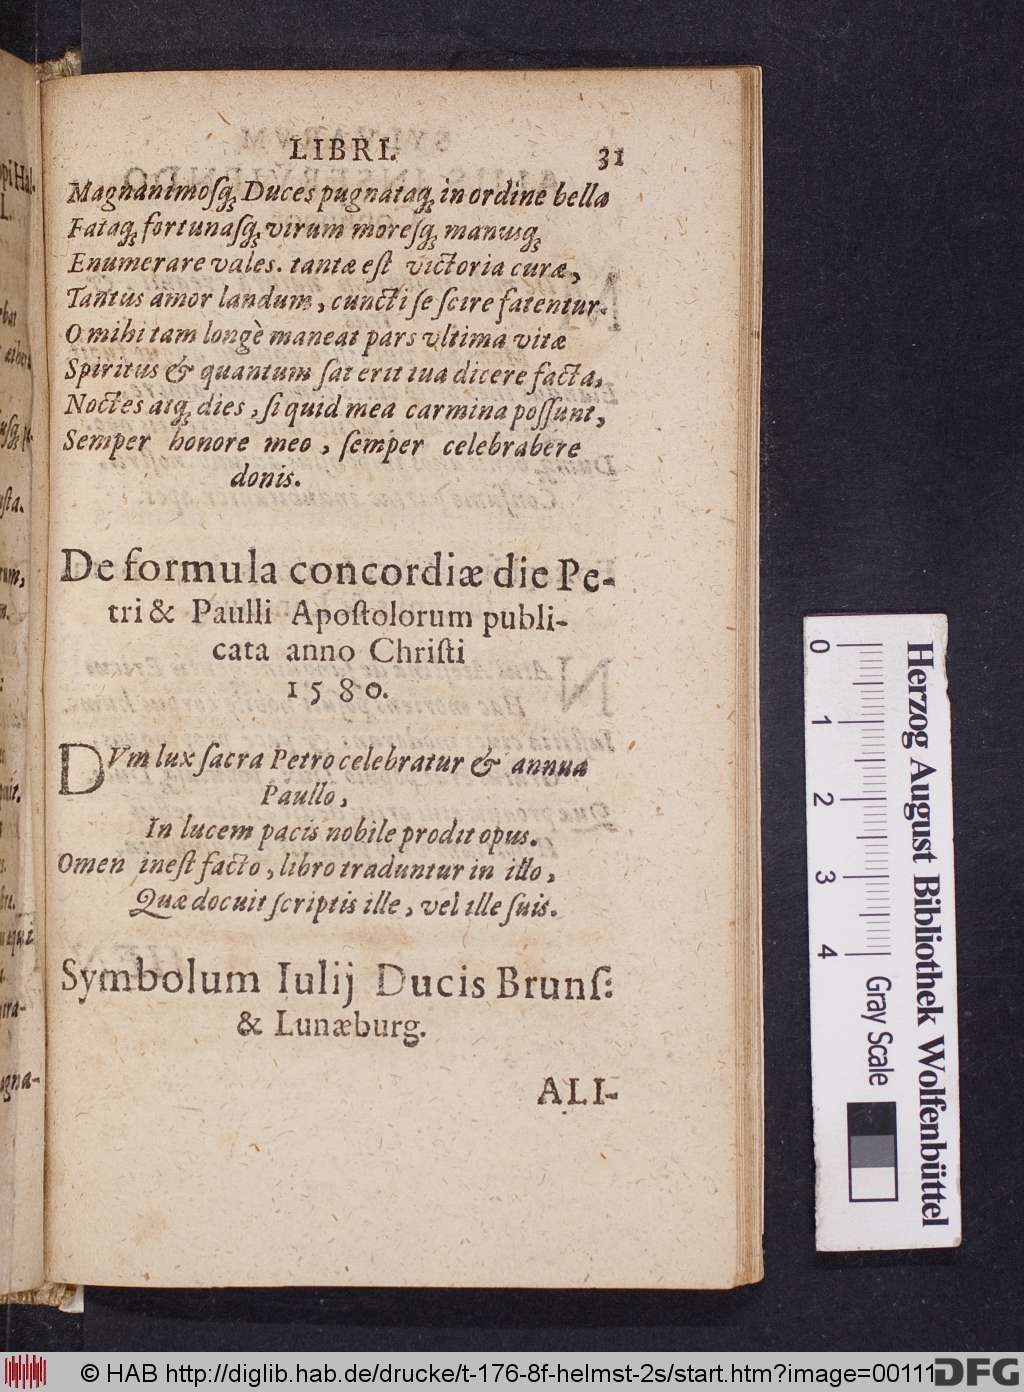 LIBRI. 31
Magnanimosq́; Duces pugnataq́; in ordine bella
Fataq́; fortunasq́; virum moresq́; manusq́;
Enumerare vales. tantæ eſt victoria curæ,
Tantus amor landum, cuncti ſe ſcire fatentur.
O mihi tam longè maneat pars vltima vitæ
Spiritus & quantum ſat erit tua dicere facta,
Noctes atq́; dies, ſi quid mea carmina poſſunt,
Semper honore meo, ſemper celebrabere
donis.
De formula concordiæ die Pe-
tri & Paulli Apoſtolorum publi-
cata anno Chriſti
1580.
DVm lux ſacra Petro celebratur & annua
Paullo,
In lucem pacis nobile prodit opus.
Omen ineſt facto, libro traduntur in illo,
Quæ docuit ſcriptis ille, vel ille ſuis.
Symbolum Iulij Ducis Brunſ:
& Lunæburg.
ALI-
0 1 2 3 4
Herzog August Bibliothek Wolfenbüttel
Gray Scale
© HAB http://diglib.hab.de/drucke/t-176-8f-helmst-2s/start.htm?image=00111
DFG